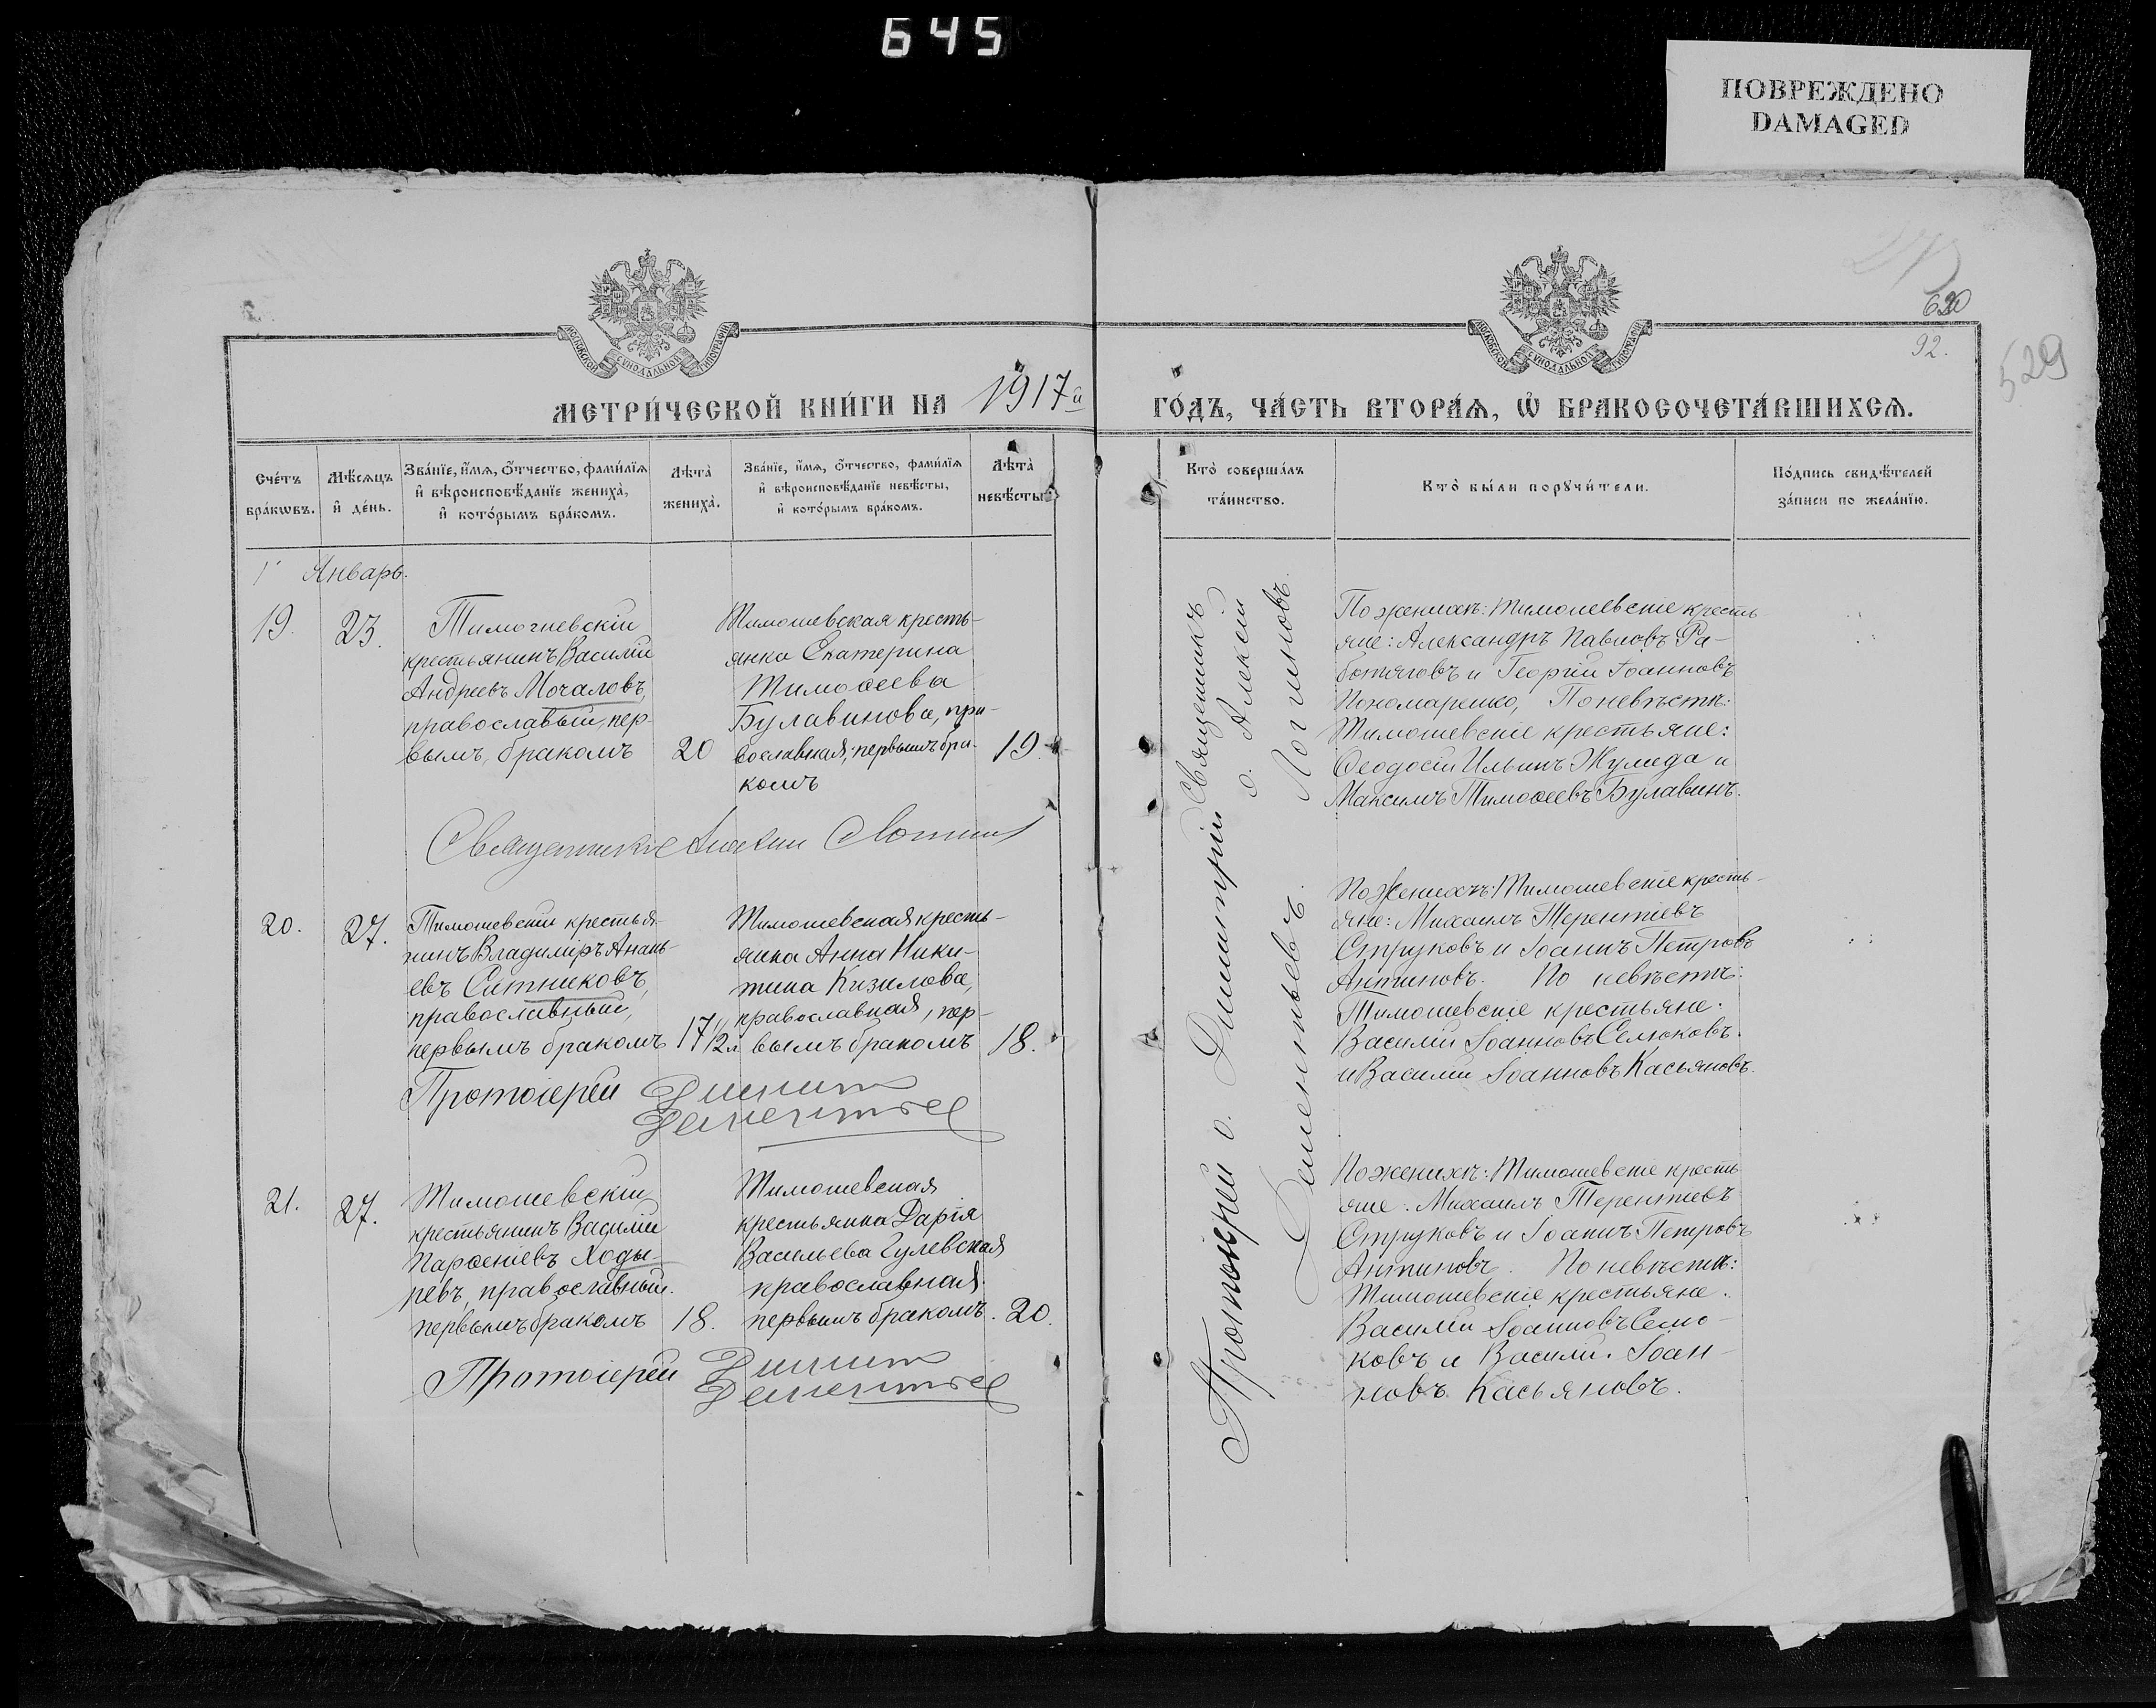 645
ПОВРЕЖДЕНО
DAMAGED
620
92.
529
МОСКОВСКОЙ СѴНОДАЛЬНОЙ ТИПОГРАФІИ
МОСКОВСКОЙ СѴНОДАЛЬНОЙ ТИПОГРАФІИ
МЕТРИ́ЧЕСКОЙ КНИ́ГИ НА 1917й
ГО́ДЪ, ЧА́СТЬ ВТОРА́Ѧ, Ѡ҆ БРАКОСОЧЕТА́ВШИХСѦ.
Сче́тъ
бра́кѡвъ.
Мѣ́сѧцъ
и҆ де́нь.
Зва́нїе, и҆́мѧ, ѻ҆́тчество, фами́лїѧ
и҆ вѣроисповѣ́данїе жениха̀,
и҆ кото́рымъ бра́комъ.
Лѣта̀
жениха̀.
Зва́нїе, и҆́мѧ, ѻ҆́тчество, фами́лїѧ
и҆ вѣроисповѣ́данїе невѣ́сты,
и҆ кото́рымъ бра́комъ.
Лѣта̀
невѣ́сты.
Кто̀ соверша́лъ
та́инство.
Кто̀ бы́ли порꙋчи́тели.
По́дпись свидѣ́телей
за́писи по жела́нїю.
Январь.
19.
23.
Тимошевскій
крестьянинъ Василій
Андреевъ Мочаловъ,
православный, пер-
вымъ бракомъ
20
Тимошевская кресть-
янка Екатерина
Тимоѳеева
Булавинова, пра-
вославная, первымъ бра-
комъ
19.
Священникъ Алексій Логиновъ
По женихѣ: Тимошевскіе кресть
яне: Александръ Павловъ Ра-
ботяговъ и Георгій Іоанновъ
Пономаренко, По невѣстѣ:
Тимошевскіе крестьяне:
Ѳеодосій Ильинъ Жулида и
Максимъ Тимоѳеевъ Булавинъ.
20.
27.
Тимошевскій крестья-
нинъ Владиміръ Анань-
евъ Ситниковъ,
православный,
первымъ бракомъ
17 1/2 л
Тимошевская кресть-
янка Анна Ники-
тина Кизилова,
православная, пер-
вымъ бракомъ
18.
Протоіерей Димит
Дементьев
По женихѣ: Тимошевскіе кресть-
яне: Михаилъ Терентіевъ
Струковъ и Іоаннъ Петровъ
Антиповъ. По невѣстѣ:
Тимошевскіе крестьяне:
Василій Іоанновъ Селюковъ.
и Василій Іоанновъ Касьяновъ.
21.
27.
Тимошевскій
крестьянинъ Василій
Парѳеніевъ Ходы-
ревъ, православный.
первымъ бракомъ
18.
Тимошевская
крестьянка Дарія
Васильева Гулевская
православная.
первымъ бракомъ.
20.
Протоіерей Димит
Дементьев
По женихѣ: Тимошевскіе кресть
яне: Михаилъ Терентіевъ
Струковъ и Іоаннъ Петровъ
Антиповъ. По невѣстѣ:
Тимошевскіе крестьяне.
Василій Іоанновъ Селю-
ковъ и Василій Іоан-
новъ Касьяновъ.
Священникъ
о. Алексій
Логиновъ.
Протоіерей о. Димитрій
Дементьевъ.